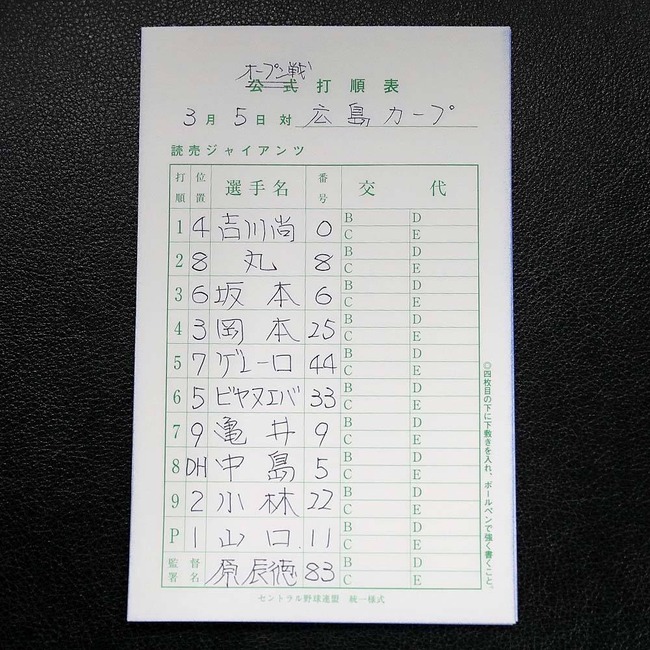 オープン戦
公式打順表
3月5日対 広島カープ
読売ジャイアンツ
打順 位置 選手名 番号 交代
1 4 吉川尚 0 B D C E
2 8 丸 8 B D C E
3 6 坂本 6 B D C E
4 3 岡本 25 B D C E
5 7 ゲレーロ 44 B D C E
6 5 ビヤヌエバ 33 B D C E
7 9 亀井 9 B D C E
8 DH 中島 5 B D C E
9 2 小林 22 B D C E
P 1 山口 11 B D C E
監督署名 原辰徳 83 B D C E
◎四枚目の下に下敷きを入れ、ボールペンで強く書くこと。
セントラル野球連盟 統一様式